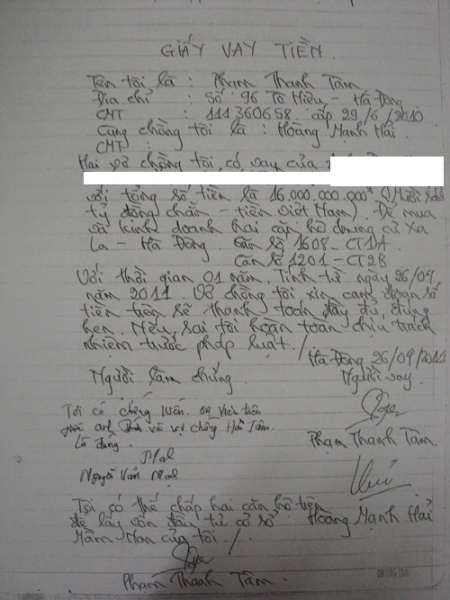 GIẤY VAY TIỀN
Tên tôi là : Phạm Thanh Tâm
Địa chỉ : Số 96 Tô Hiệu - Hà Đông
CMT : 111360658. cấp 29/6/2010
Cùng chồng tôi là : Hoàng Mạnh Hải
CMT :
Hai vợ chồng tôi, có vay của
với tổng số tiền là 16.000.000.000đ (Mười sáu
tỷ đồng chẵn - tiền Việt Nam). Để mua
và kinh doanh hai căn hộ chung cư Xa
La - Hà Đông. Căn số 1608 - CT1A
Căn số 1201 - CT2B
Với thời gian 01 năm. Tính từ ngày 26/09
năm 2011. Vợ chồng tôi xin cam đoan số
tiền trên sẽ thanh toán đầy đủ, đúng
hẹn. Nếu sai tôi hoàn toàn chịu trách
nhiệm trước pháp luật./
Hà Đông 26/09/2011
Người làm chứng. Người vay.
Tôi có chứng kiến
và vợ chồng Hải Tâm.
Là đúng.
Phạm Thanh Tâm.
Nguyễn Văn
Tôi có thế chấp hai căn hộ trên
để lấy vốn đầu tư cơ sở Hoàng Mạnh Hải
Mầm Non của tôi./
Phạm Thanh Tâm.